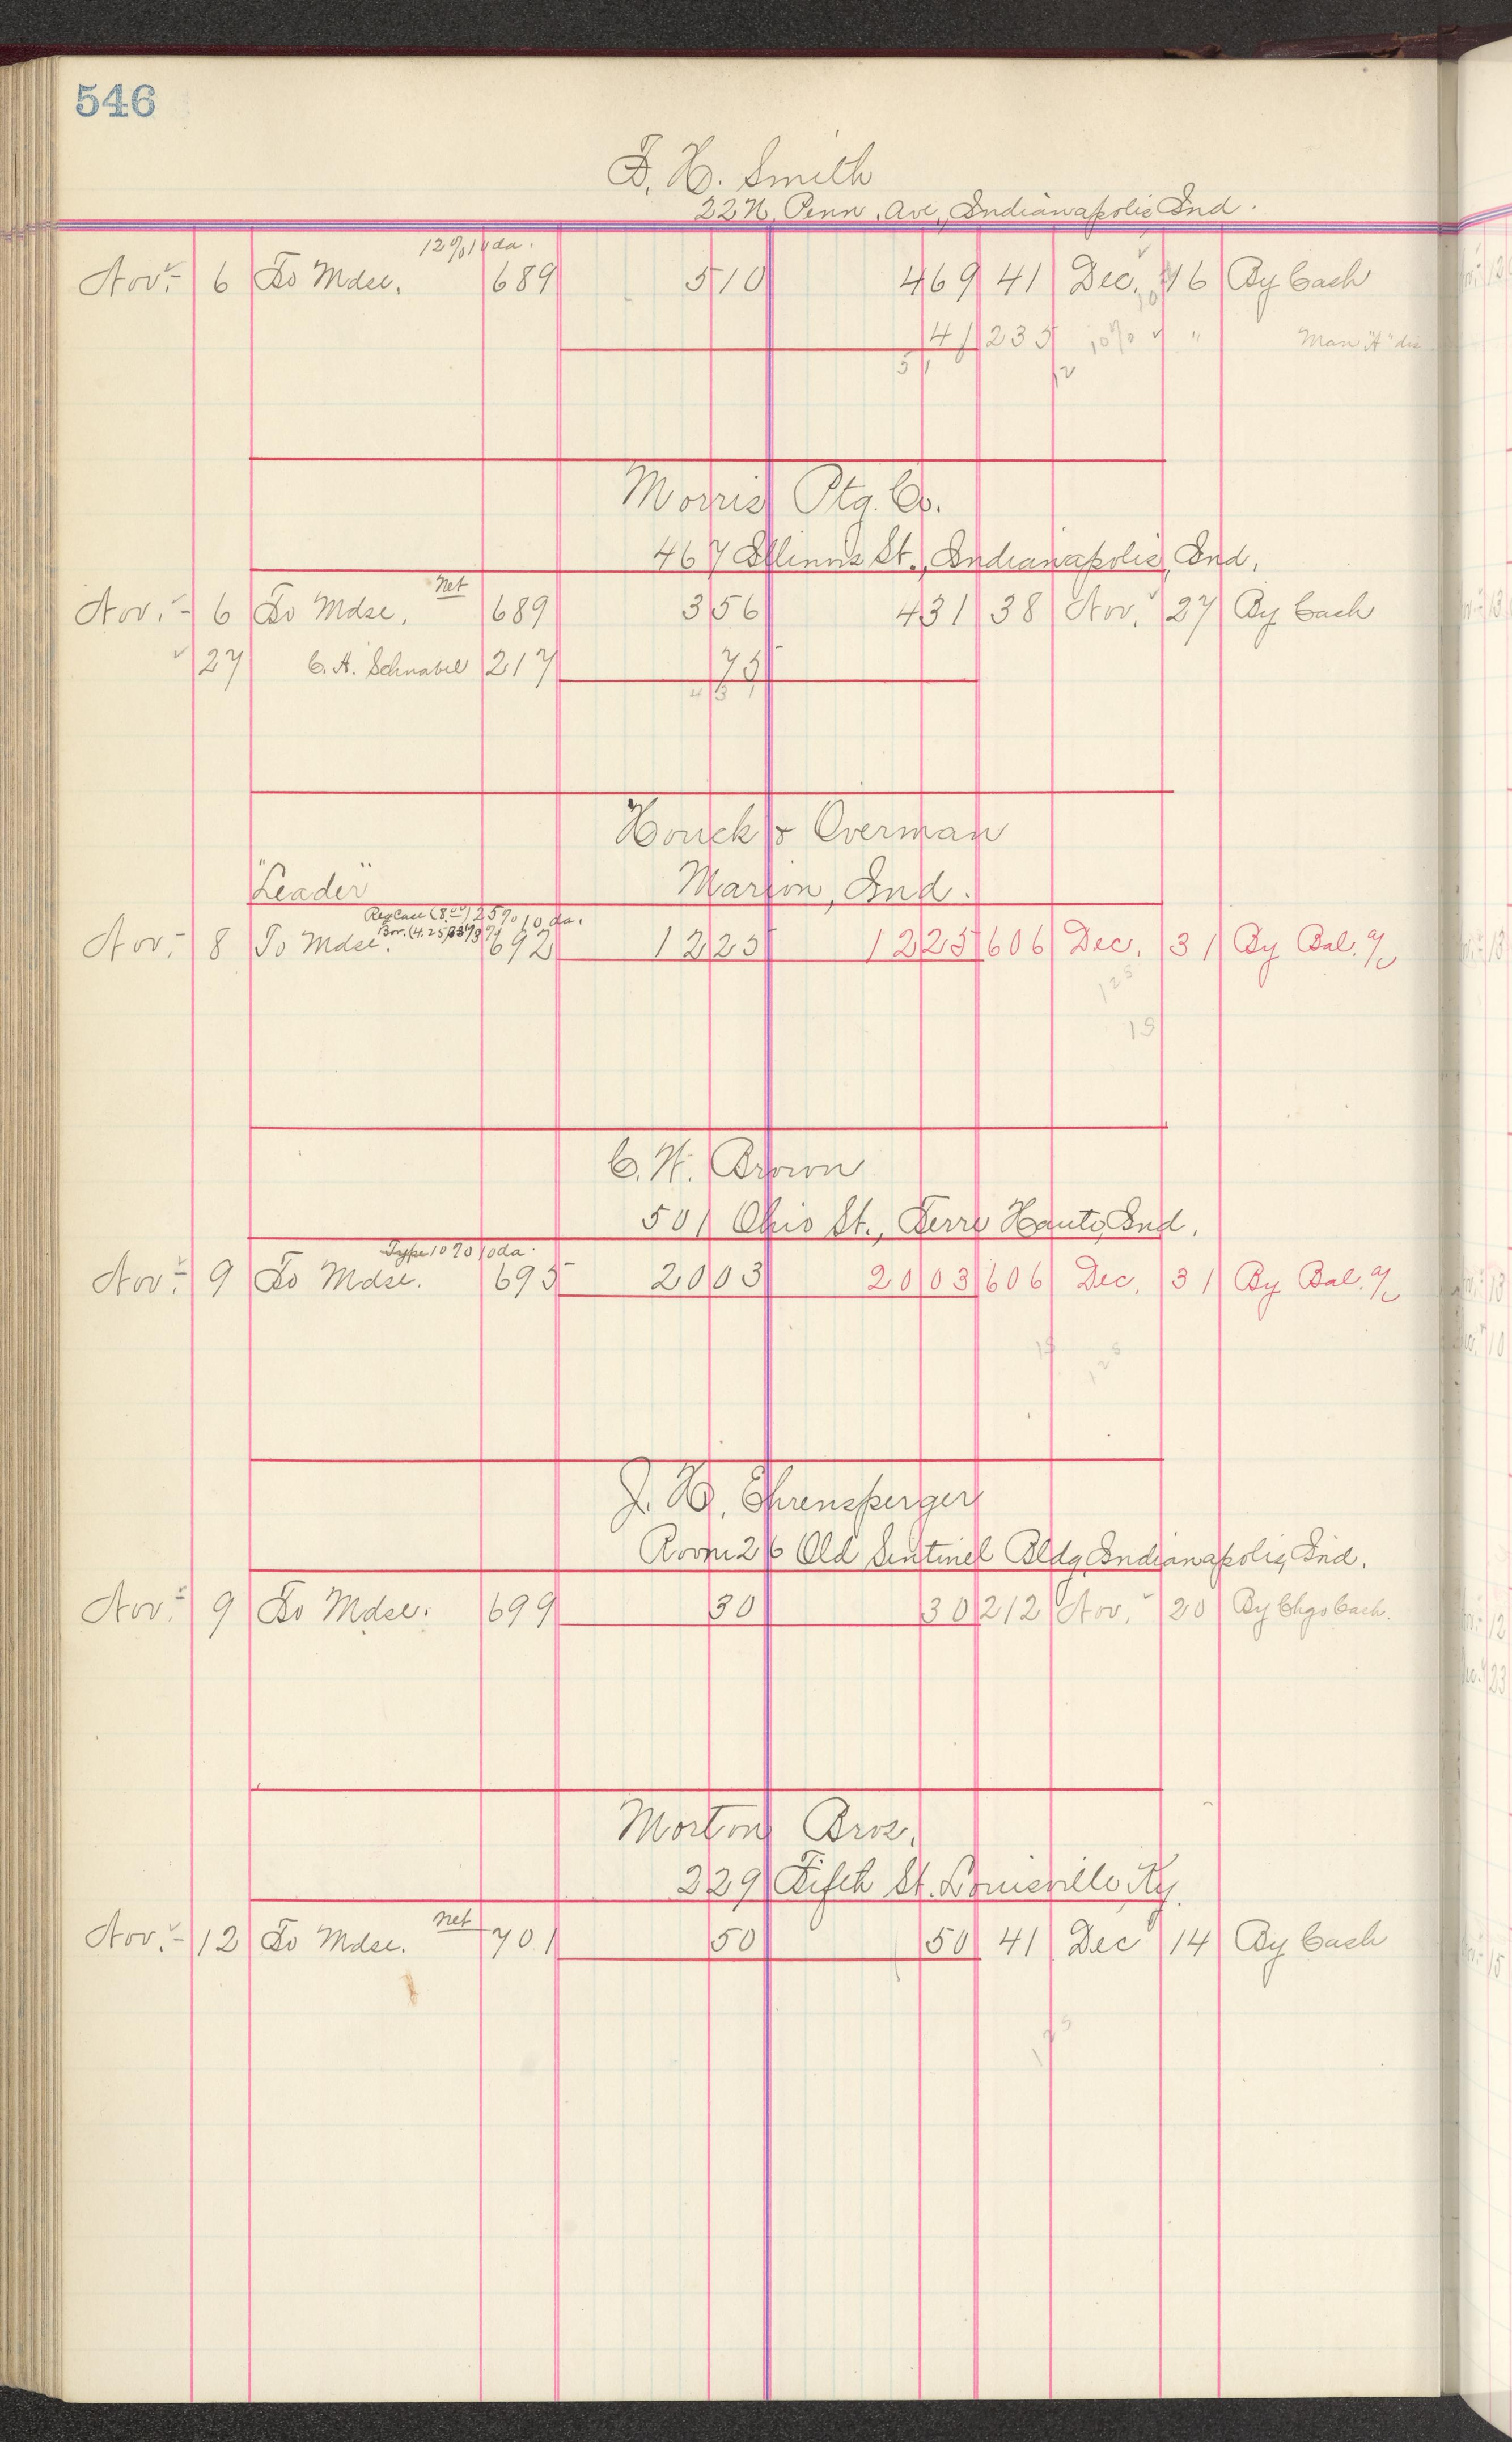 546
F. H. Smith
22 N. Penn. Ave, Indianapolis Ind.
12% 10 da.
Nov. 6 To Mdse. 689 5 10 4 69 41 Dec. 16 By Cash
41 235 10% " "
5 1
Morris Ptg. Co.
467 Illinois St., Indianapolis, Ind.
Net
Nov. 6 To Mdse. 689 3 56 4 31 38 Nov. 27 By Cash
27 C. A. Schnabel 217 75
4 3 1
Houck & Overman
"Leader" Marion, Ind.
25% 10 da.
Nov. 8 To Mdse. 692 12 25 12 25 606 Dec. 31 By Bal. a/c
125
15
C. W. Brown
501 Ohio St., Terre Haute, Ind.
Type 10% 10 da.
Nov. 9 To Mdse. 695 20 03 20 03 606 Dec. 31 By Bal. a/c
15
125
J. H. Ehrensperger
Room 26 Old Sentinel Bldg, Indianapolis, Ind.
Nov. 9 To Mdse. 699 30 30 212 Nov. 20 By Chgo Cash.
Morton Bros.
229 Fifth St. Louisville, Ky.
net
Nov. 12 To Mdse. 701 50 50 41 Dec 14 By Cash